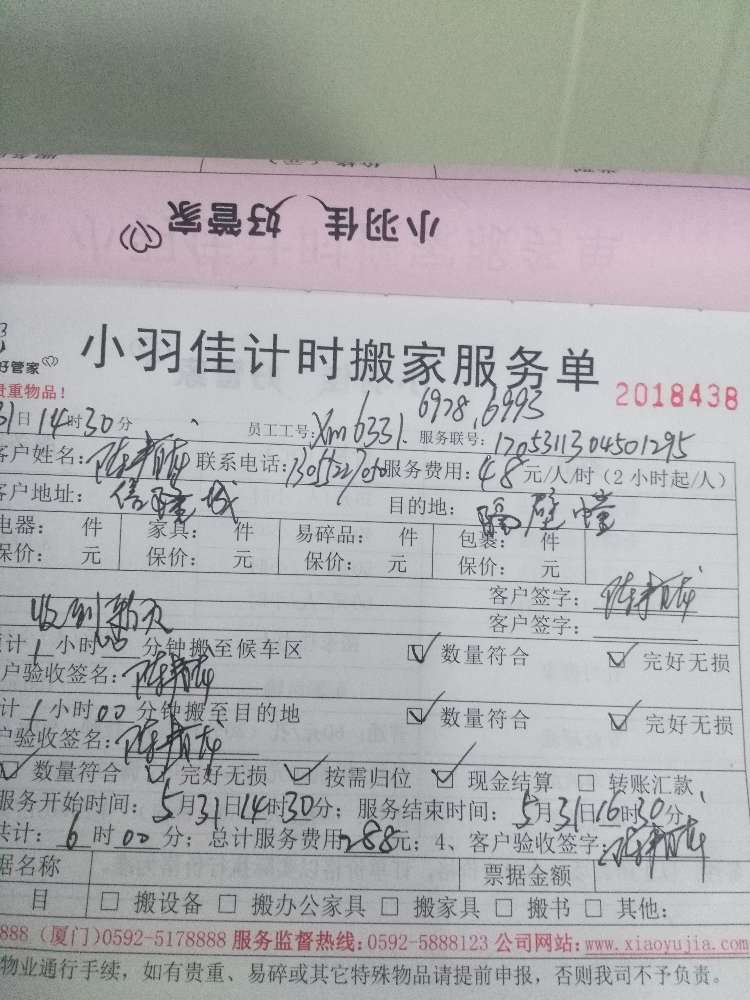 小羽佳 好管家
小羽佳计时搬家服务单
好管家
2018438
贵重物品!
31日14时30分
员工工号:Xm6331. 6978.6993 服务联号:1705311304501295
客户姓名: 联系电话: 服务费用:48元/人/时(2小时起/人)
客户地址: 目的地:隔壁
电器: 件 家具: 件 易碎品: 件 包装: 件
保价: 元 保价: 元 保价: 元 保价: 元
客户签字:
客户签字:
计1小时00分钟搬至候车区 ☑ 数量符合 ☑ 完好无损
户验收签名:
计1小时00分钟搬至目的地 ☑ 数量符合 ☑ 完好无损
户验收签名:
☑ 数量符合 ☑ 完好无损 ☑ 按需归位 ☑ 现金结算 □ 转账汇款
服务开始时间:5月31日14时30分;服务结束时间:5月31日16时30分
共计:6时00分;总计服务费用288元;4、客户验收签字:
据名称 票据金额
目 □ 搬设备 □ 搬办公家具 □ 搬家具 □ 搬书 □ 其他:
888(厦门)0592-5178888 服务监督热线:0592-5888123 公司网站:www.xiaoyujia.com
物业通行手续,如有贵重、易碎或其它特殊物品请提前申报,否则我司不予负责。